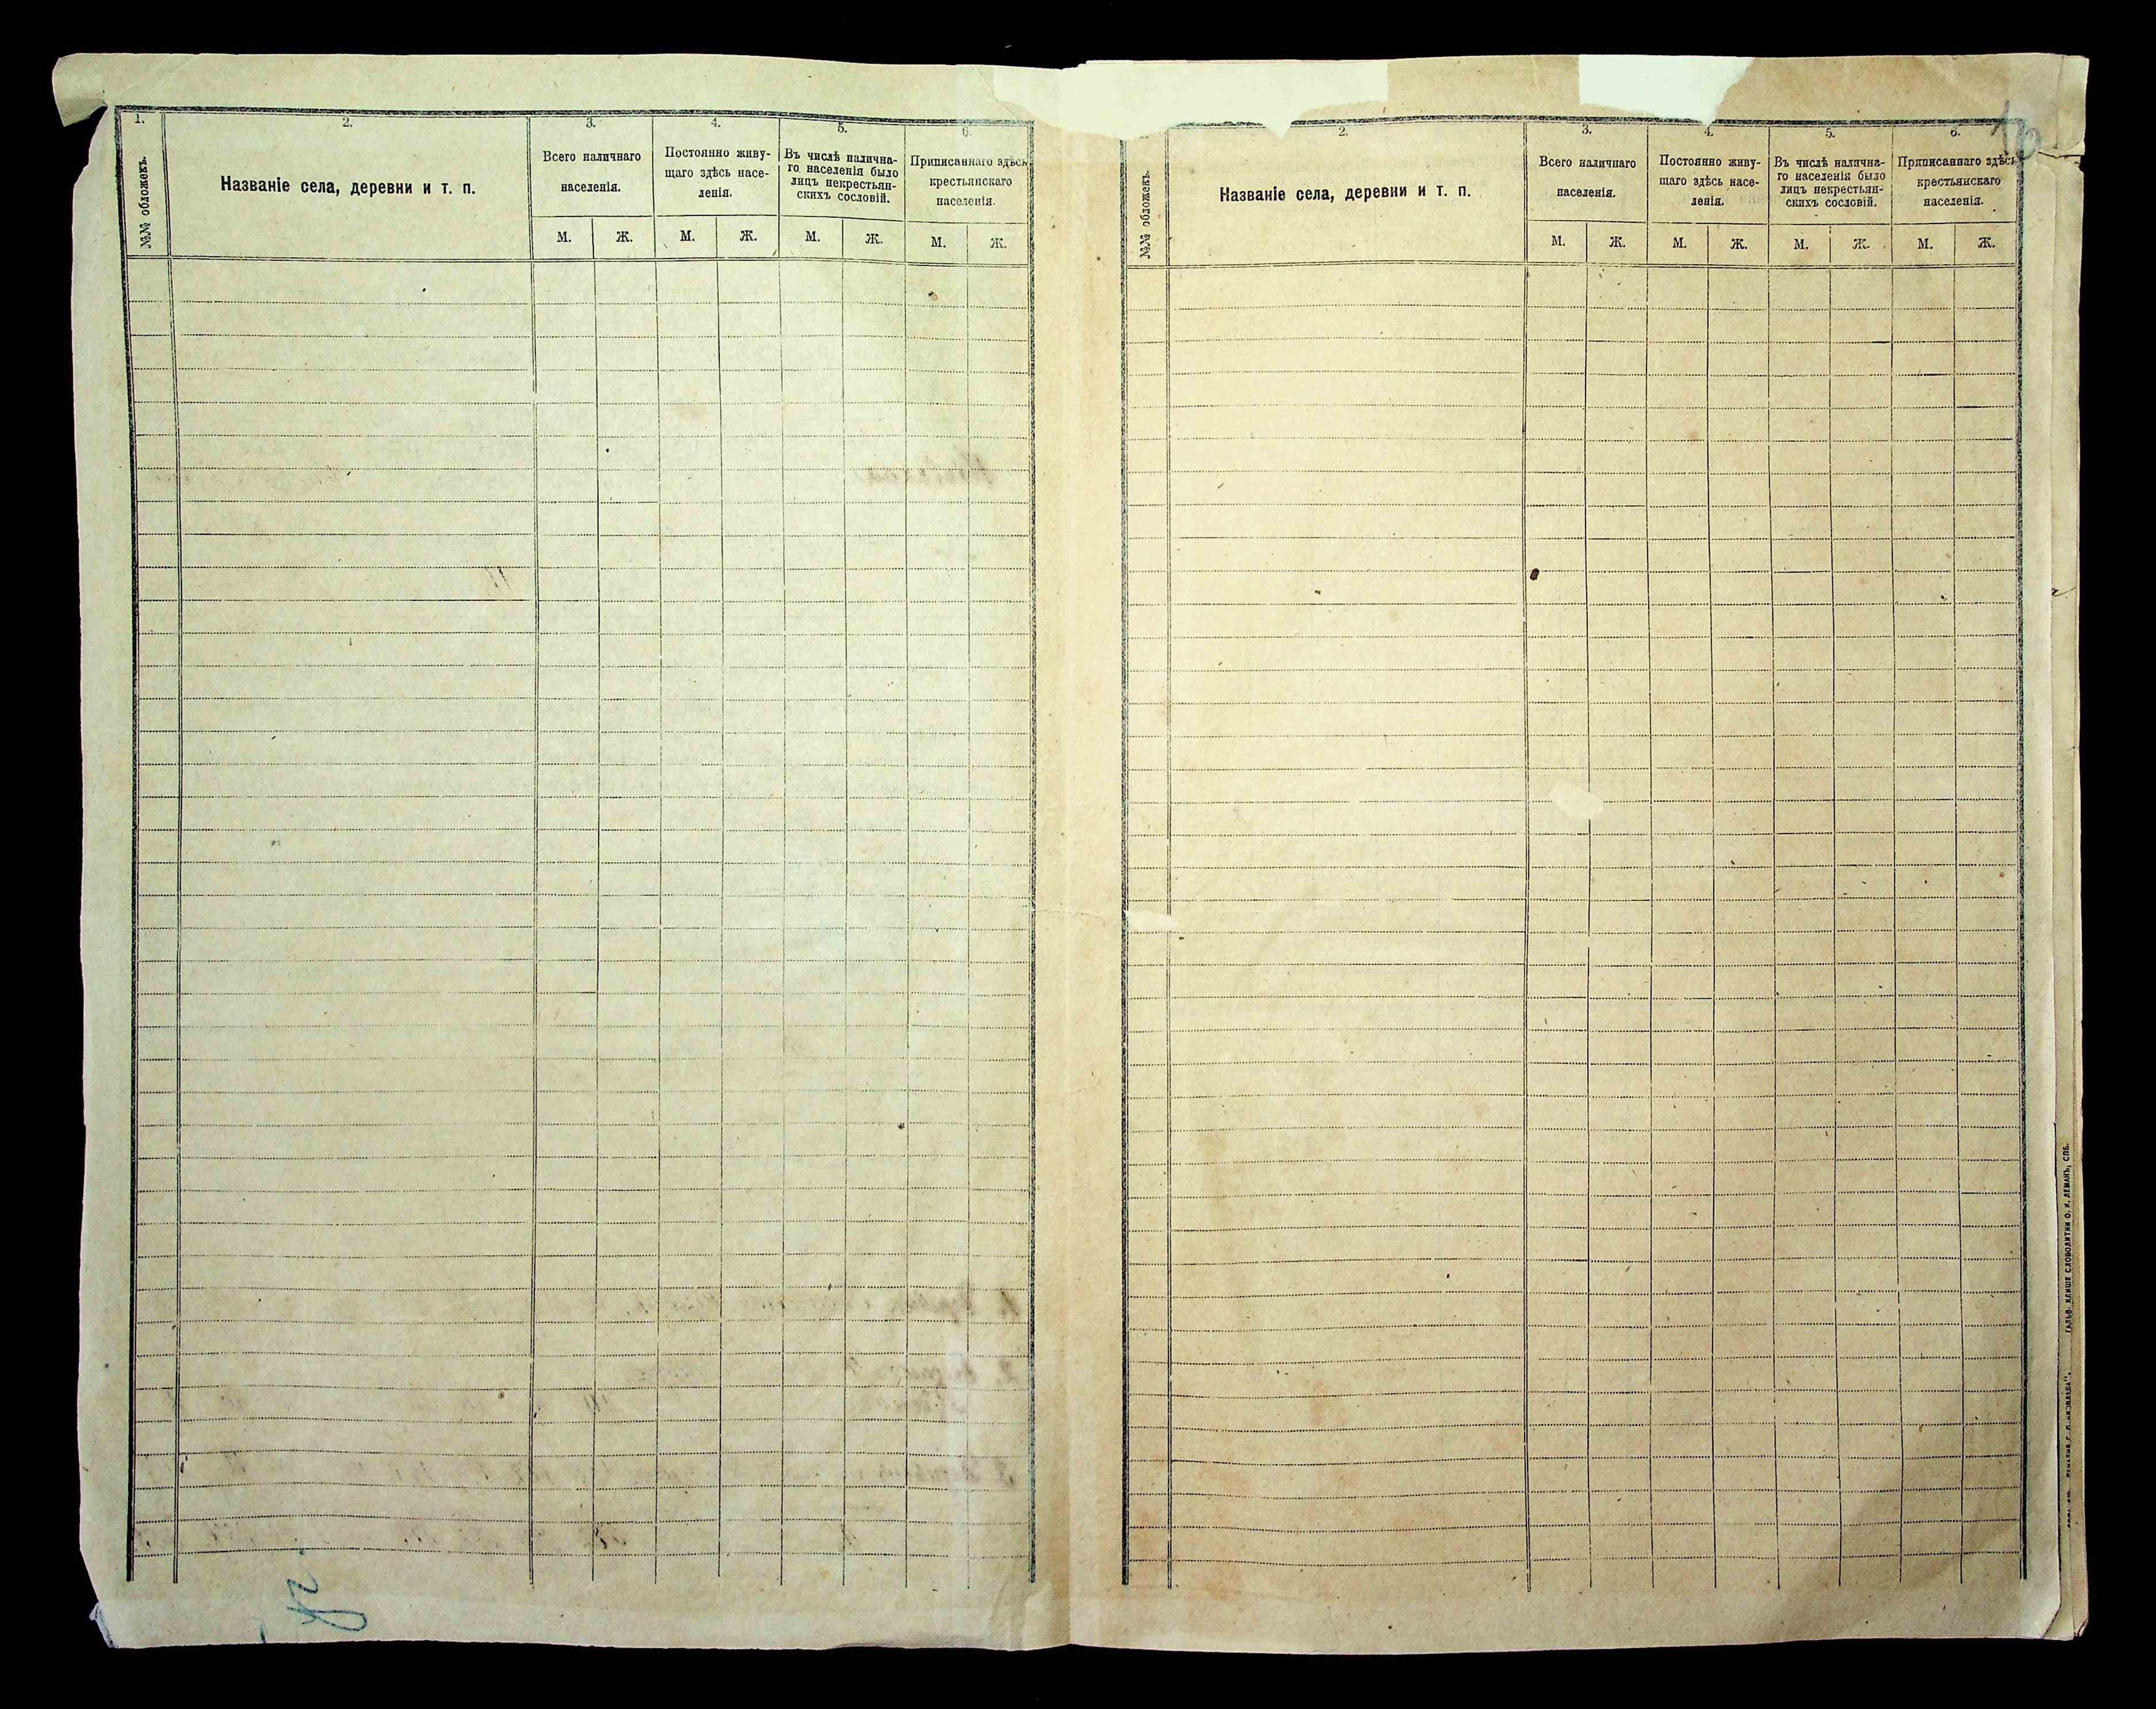 1.
2.
3.
4.
5.
6.
№№ обложекъ.
Названіе села, деревни и т. п.
Всего наличнаго
населенія.
Постоянно живу-
щаго здѣсь насе-
ленія.
Въ числѣ налична-
го населенія было
лицъ некрестьян-
скихъ сословій.
Приписаннаго здѣсь
крестьянскаго
населенія.
М. Ж. М. Ж. М. Ж. М. Ж.
2.
3.
4.
5.
6.
№№ обложекъ.
Названіе села, деревни и т. п.
Всего наличнаго
населенія.
Постоянно живу-
щаго здѣсь насе-
ленія.
Въ числѣ налична-
го населенія было
лицъ некрестьян-
скихъ сословій.
Приписаннаго здѣсь
крестьянскаго
населенія.
М. Ж. М. Ж. М. Ж. М. Ж.
СЛОВОЛИТНИ О. И. ЛЕМАНЪ, СПБ.